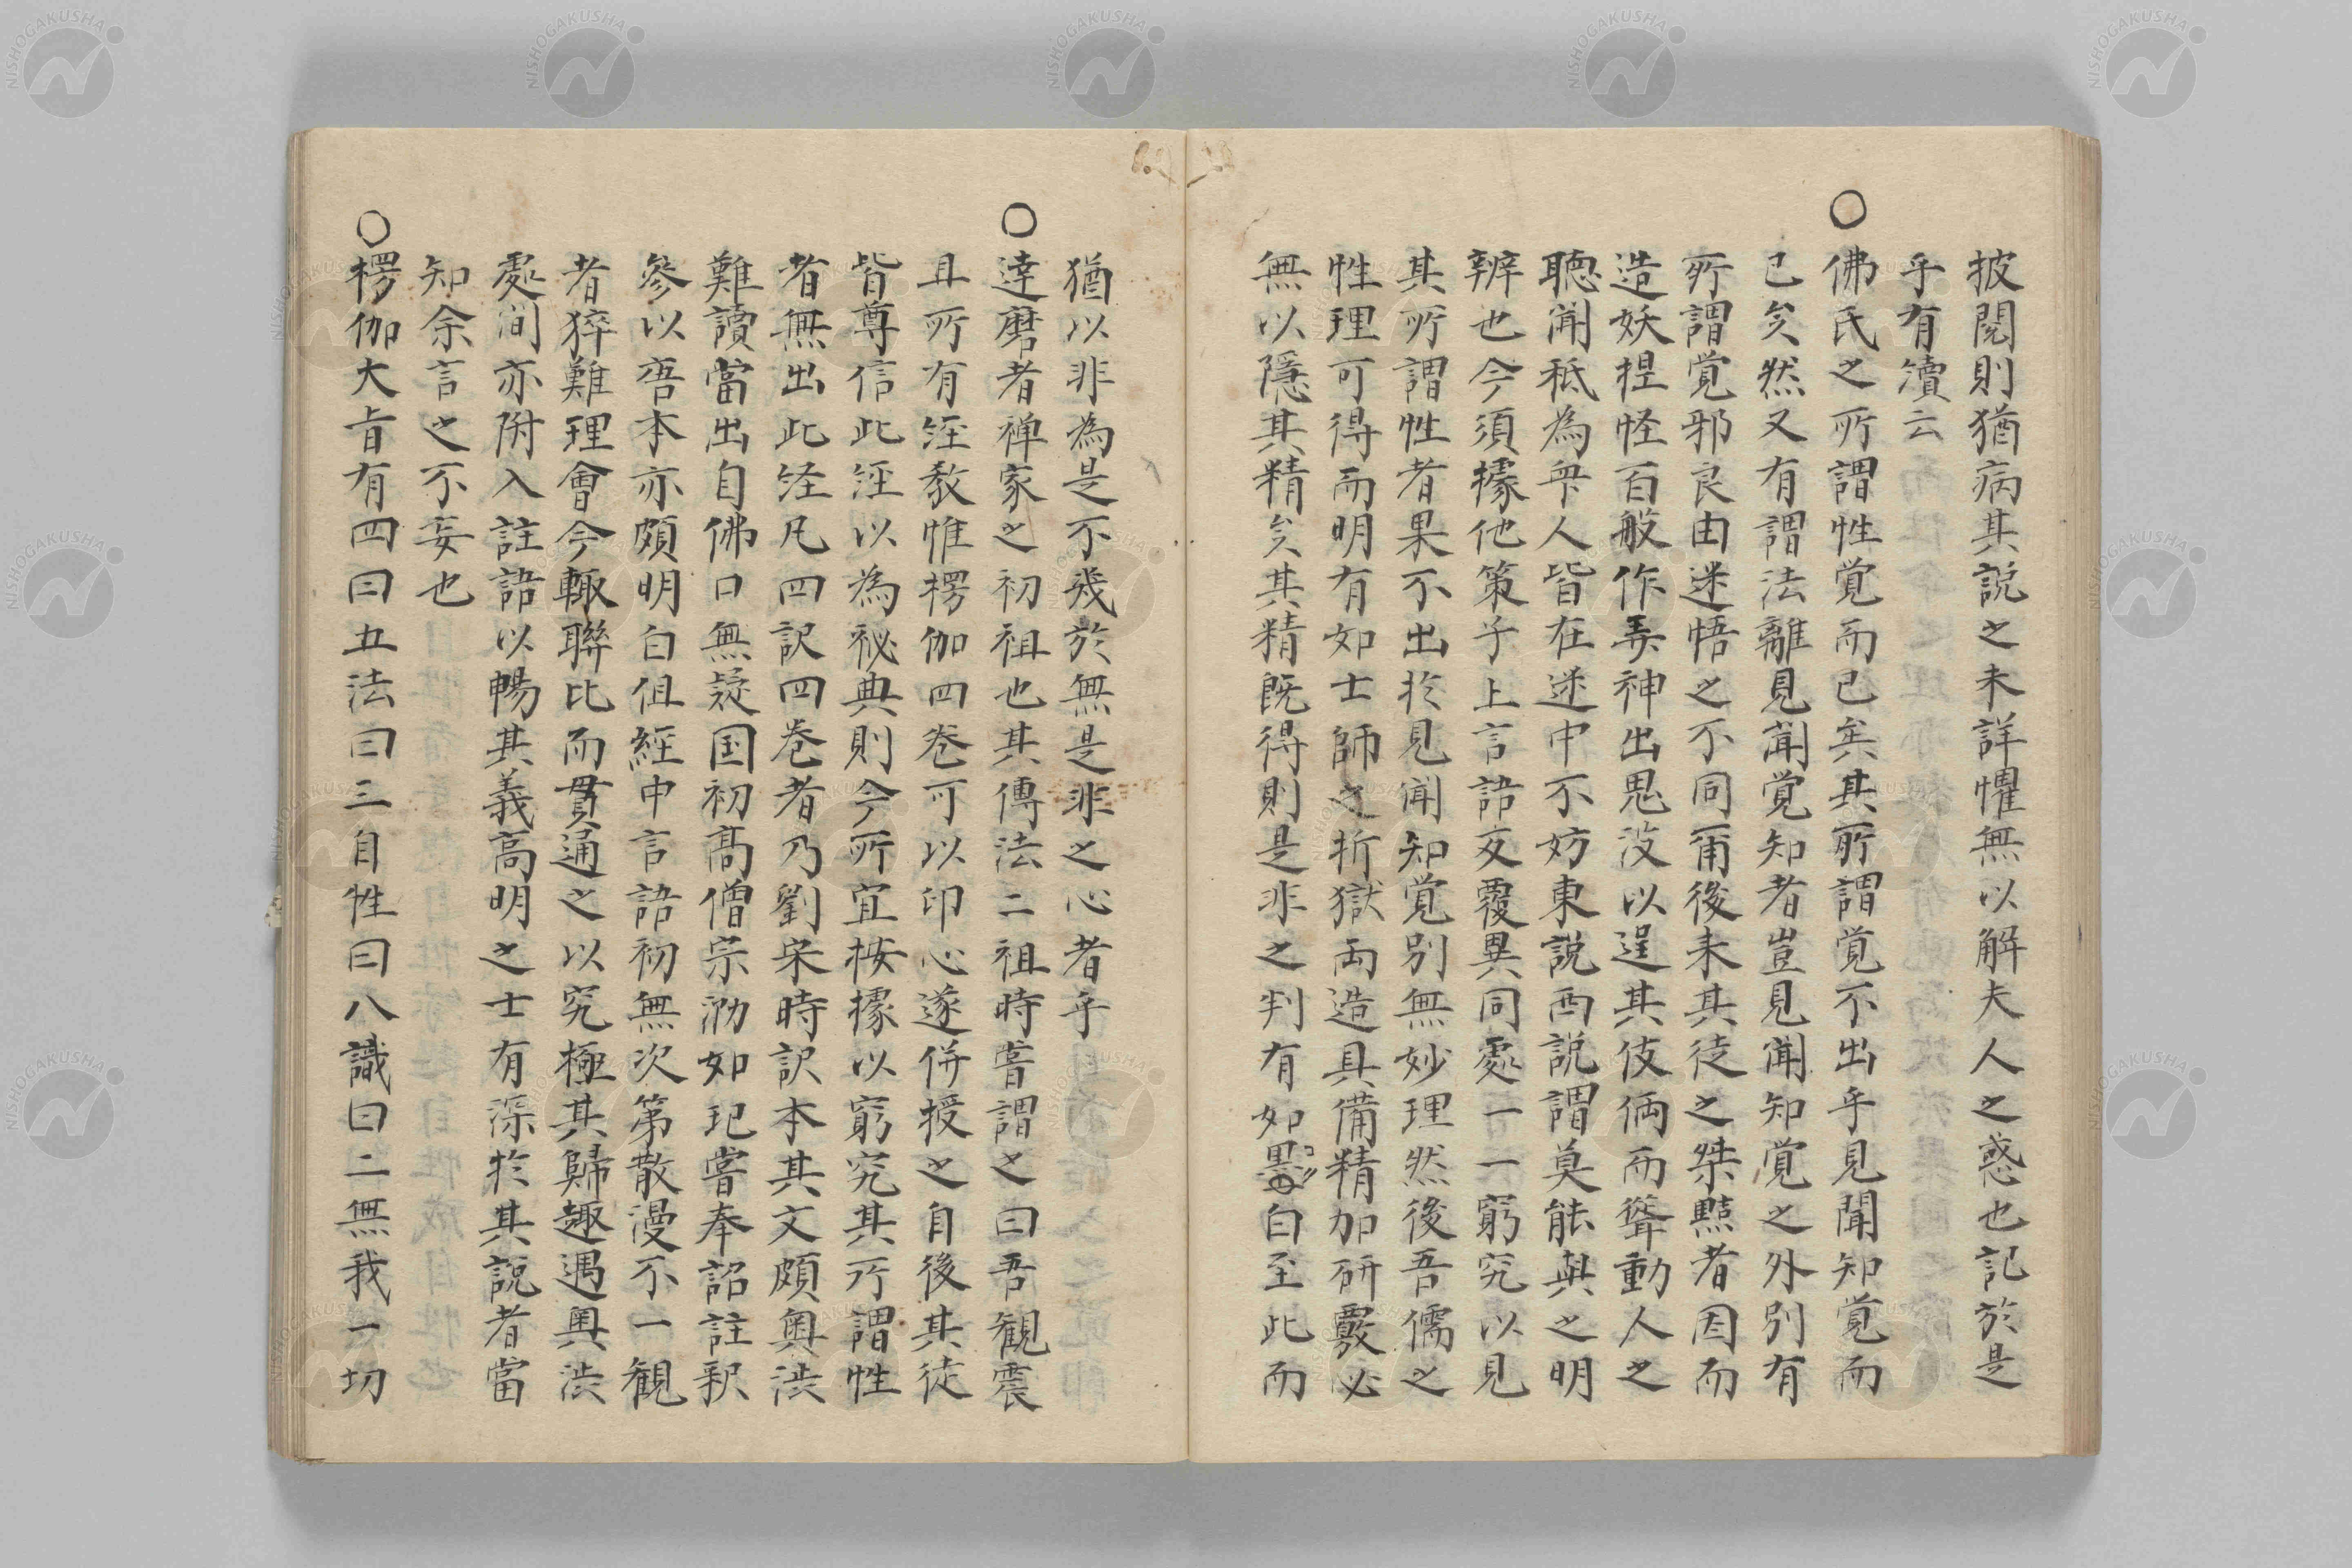 披閱則猶病其説之未詳懼無以解夫人之惑也記於是
乎有瀆云
○佛氏之所謂性覚而已矣其所謂覚不出乎見聞知覚而
已矣然又有謂法離見聞覚知者豈見聞知覚之外別有
所謂覚邪良由迷悟之不同爾後来其徒之桀黠者因而
造妖捏怪百般作弄神出鬼没以逞其伎倆而聳動人之
聴聞秪為衆人皆在迷中不妨東説西説謂莫能與之明
辨也今須據他策子上言語反覆異同處一一窮究以見
其所謂性者果不出於見聞知覚別無妙理然後吾儒之
性理可得而明有如士師之折獄両造具備精加研覈必
無以隠其精矣其精既得則是非之判有如黒白至此而
猶以非為是不幾於無是非之心者乎
○達磨者禅家之初祖也其傳法二祖時嘗謂之曰吾観震
旦所有経教惟楞伽四巻可以印心遂併授之自後其徒
皆尊信此経以為秘典則今所宜按據以窮究其所謂性
者無出此経凡四訳四巻者乃劉宋時訳本其文頗奥渋
難讀當出自佛口無疑国初髙僧宗泐如玘嘗奉詔註釈
參以唐本亦頗明白但經中言語初無次第散漫不一観
者猝難理會今輙聯比而貫通之以究極其歸趣遇奥渋
處間亦附入註語以暢其義高明之士有深於其説者當
知余言之不妄也
○楞伽大旨有四曰五法曰三自性曰八識曰二無我一切
NISHOGAKUSHA